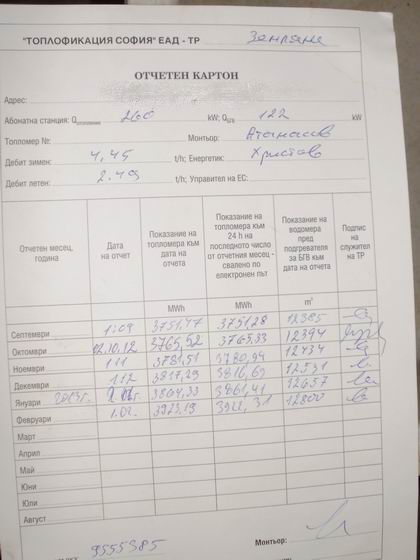 "ТОПЛОФИКАЦИЯ СОФИЯ" ЕАД - ТР
ОТЧЕТЕН КАРТОН
Адрес:
Абонатна станция: Qотопление 260 kW; QБГВ 122 kW
Топломер №: Монтьор: Атанасов
Дебит зимен: 4,45 t/h; Енергетик: Христов
Дебит летен: 2.49 t/h; Управител на ЕС:
Отчетен месец, година
Дата на отчет
Показание на топломера към дата на отчета
Показание на топломера към 24 h на последното число от отчетния месец - свалено по електронен път
Показание на водомера пред подгревателя за БГВ към дата на отчета
Подпис на служител на ТР
MWh MWh m³
Септември 1.09 3751,47 3751,28 12385
Октомври 02.10.12 3765,52 3765.33 12394
Ноември 1.11 3781,51 3780,94 12434
Декември 1.12 3817,29 3816,69 12531
Януари 2013г. 3864,33 3861,41 12657
Февруари 1.02. 3923,19 3922,31 12800
Март
Април
Май
Юни
Юли
Август
9555385 Монтьор: